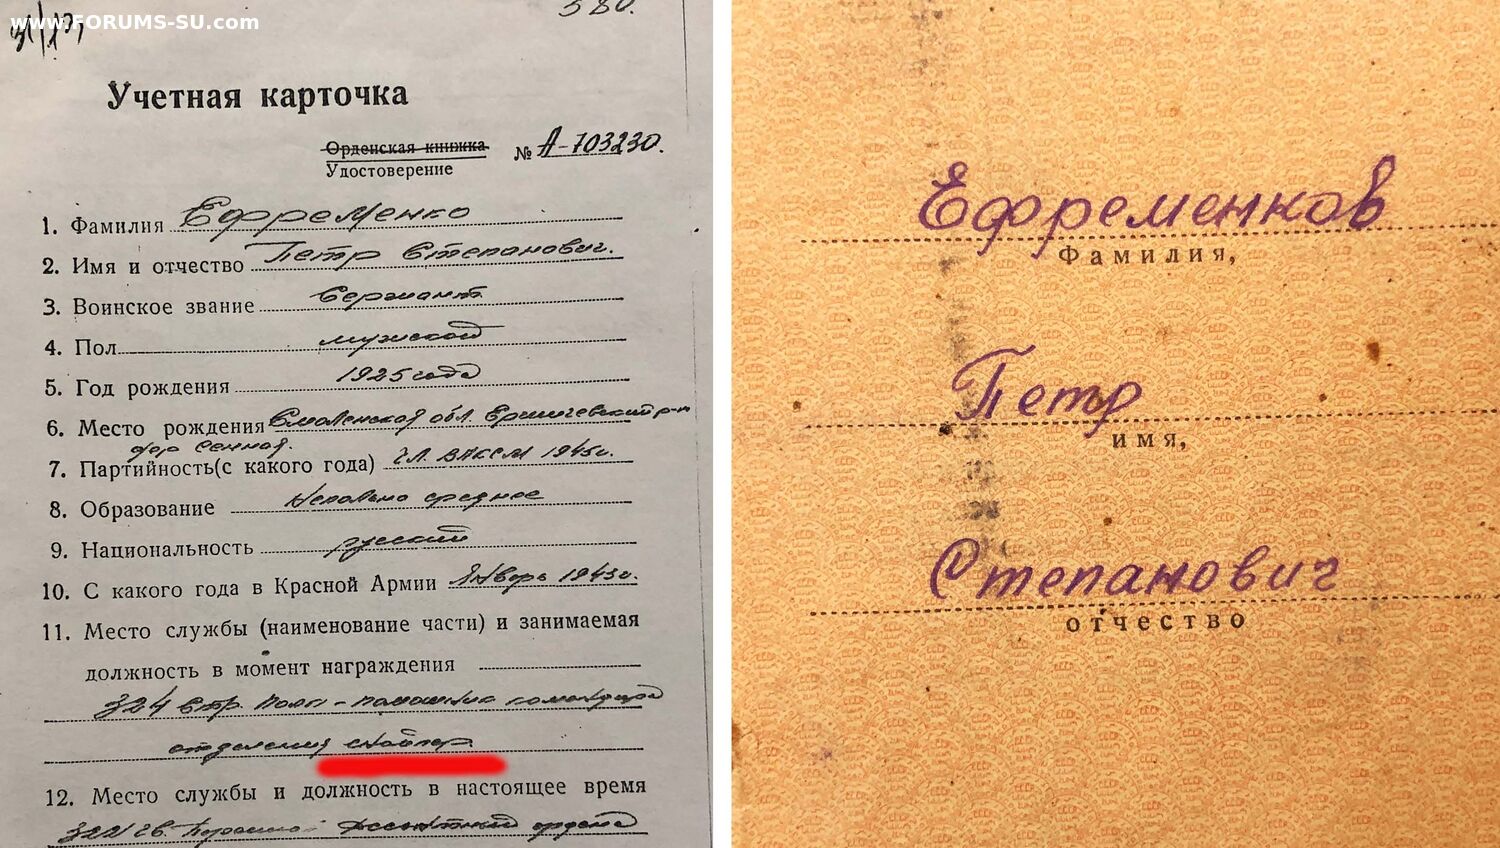 www.FORUMS-SU.com
580.
Учетная карточка
Орденская книжка
Удостоверение
№ А-703230.
1. Фамилия Ефременко
2. Имя и отчество Петр Степанович.
3. Воинское звание Сержант
4. Пол мужской
5. Год рождения 1925 года
6. Место рождения Смоленская обл. Ершичевский р-н
дер Сенная.
7. Партийность(с какого года) ЧЛ. ВЛКСМ 1945г.
8. Образование Неполно среднее
9. Национальность русский
10. С какого года в Красной Армии Январь 1943г.
11. Место службы (наименование части) и занимаемая
должность в момент награждения
324 стр. полк - помошник командира
отделения снайпер.
12. Место службы и должность в настоящее время
322 гв. ордена
Ефременков
Фамилия,
Петр
имя,
Степанович
отчество